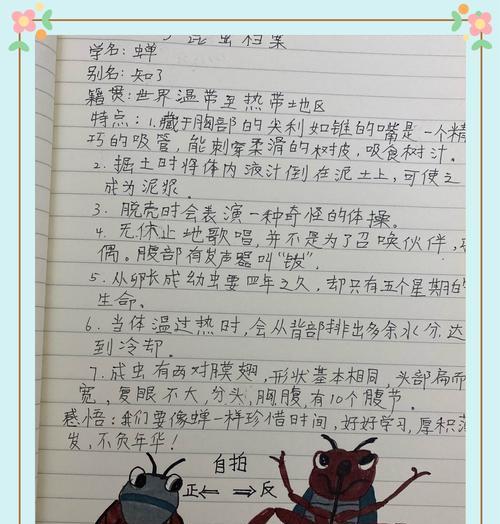 昆虫档案
学名：蝉
别名：知了
籍贯：世界温带至热带地区
特点：1.藏于胸部的尖利如锥的嘴是一个精
巧的吸管，能刺穿柔滑的树皮，吸食树汁。
2.掘土时将体内液汁倒在泥土上，可使之
成为泥浆。
3.脱壳时会表演一种奇怪的体操。
4.无休止地歌唱，并不是为了召唤伙伴，
偶。腹部有发声器叫“钹”。
5.从卵长成幼虫要四年之久，却只有五个星期的
生命。
6.当体温过热时，会从背部排出多余水分，达
到冷却。
7.成虫有两对膜翅，形状基本相同，头部扁而
宽，复眼不大，分头，胸，腹，有10个腹节。
感悟：我们要像蝉一样珍惜时间，好好学习，厚积薄
发，不负年华！
自拍
正 反